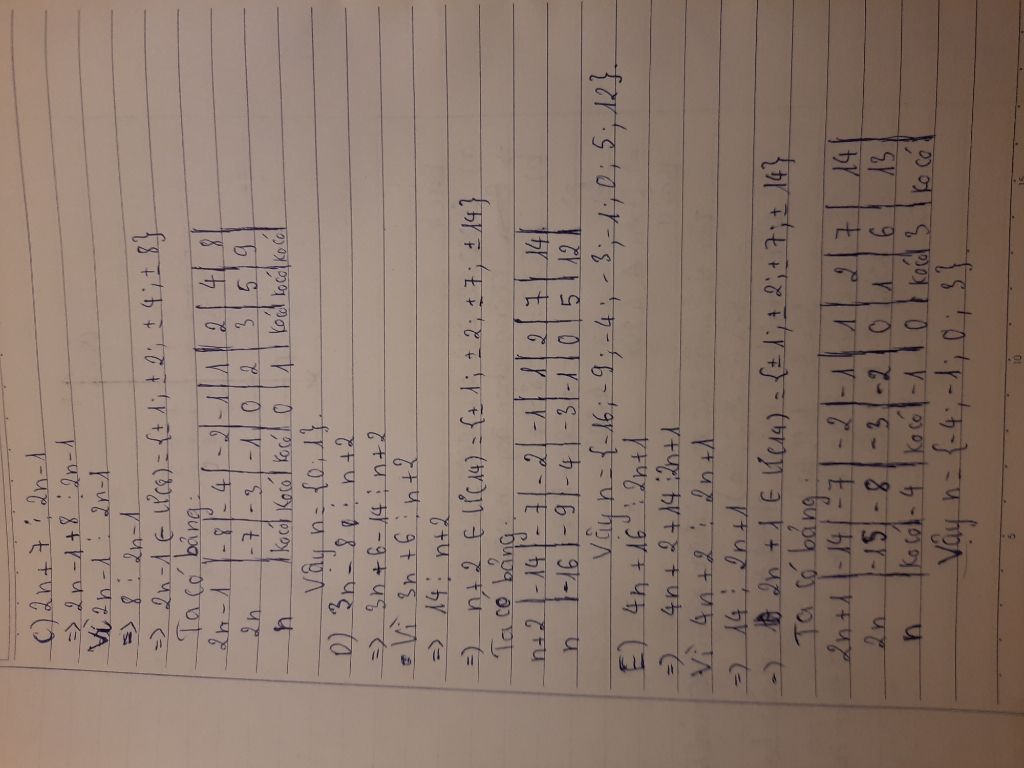 C) 2n + 7 ⋮ 2n - 1
=> 2n - 1 + 8 ⋮ 2n - 1
Vì 2n - 1 ⋮ 2n - 1
=> 8 ⋮ 2n - 1
=> 2n - 1 ∈ Ư(8) = {± 1; ± 2; ± 4; ± 8}
Ta có bảng:
2n - 1 | -8 | -4 | -2 | -1 | 1 | 2 | 4 | 8 |
2n | -7 | -3 | -1 | 0 | 2 | 3 | 5 | 9 |
n | kocó | kocó | kocó | 0 | 1 | kocó | kocó | kocó |
Vậy n = {0; 1}.
D) 3n - 8 ⋮ n + 2
=> 3n + 6 - 14 ⋮ n + 2
Vì 3n + 6 ⋮ n + 2
=> 14 ⋮ n + 2
=> n + 2 ∈ Ư(14) = {± 1; ± 2; ± 7; ± 14}
Ta có bảng:
n + 2 | -14 | -7 | -2 | -1 | 1 | 2 | 7 | 14 |
n | -16 | -9 | -4 | -3 | -1 | 0 | 5 | 12 |
Vậy n = {-16; -9; -4; -3; -1; 0; 5; 12}.
E) 4n + 16 ⋮ 2n + 1
=> 4n + 2 + 14 ⋮ 2n + 1
Vì 4n + 2 ⋮ 2n + 1
=> 14 ⋮ 2n + 1
=> 2n + 1 ∈ Ư(14) = {± 1; ± 2; ± 7; ± 14}
Ta có bảng:
2n + 1 | -14 | -7 | -2 | -1 | 1 | 2 | 7 | 14
2n | -15 | -8 | -3 | -2 | 0 | 1 | 6 | 13
n | kocó | -4 | kocó | -1 | 0 | kocó | 3 | kocó |
Vậy n = {-4; -1; 0; 3}.
5 10 15